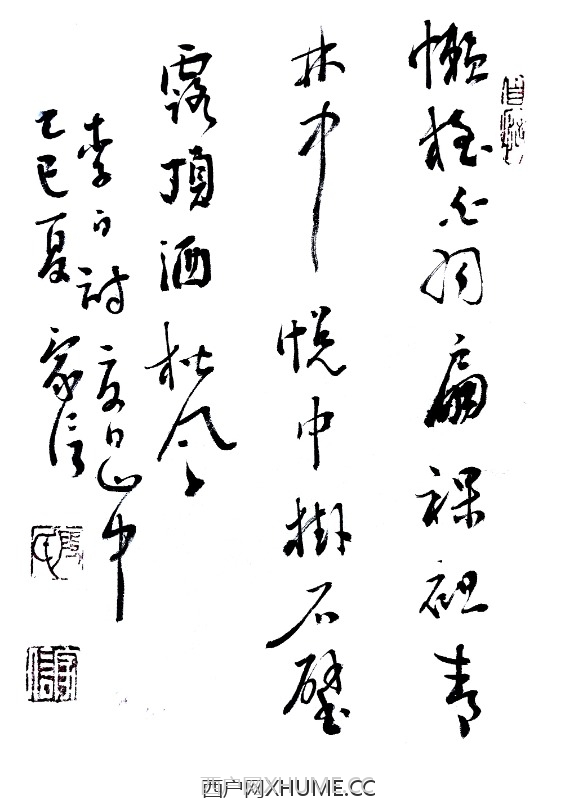 懶摇白羽扁裸袒青
林中脱巾掛石壁
露頂洒松风
李白詩夏日山中
乙巳夏家信
西户网XHUME.CC